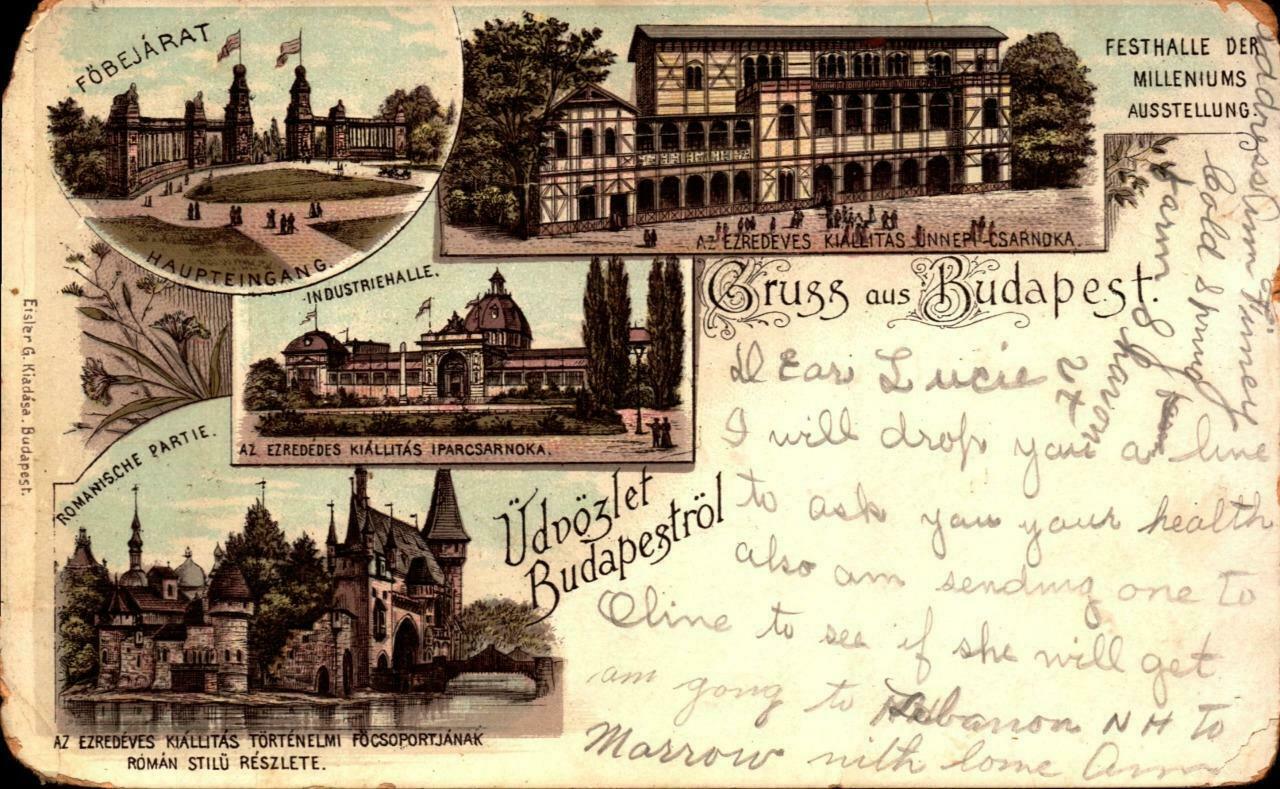 FŐBEJÁRAT
HAUPTEINGANG.
FESTHALLE DER
MILLENIUMS
AUSSTELLUNG.
AZ EZREDÉVES KIÁLLITÁS ÜNNEPI CSARNOKA.
INDUSTRIEHALLE.
AZ EZREDÉDES KIÁLLITÁS IPARCSARNOKA.
Gruss aus Budapest.
Eisler G. Kiadása. Budapest.
ROMANISCHE PARTIE.
Üdvözlet
Budapestről
AZ EZREDÉVES KIÁLLITÁS TÖRTÉNELMI FŐCSOPORTJÁNAK
RÓMÁN STILŰ RÉSZLETE.
Dear Lucie
I will drop you a line
to ask you your health
also am sending one to
Oline to see if she will get
am gong to Lebanon N H to
Marrow with lome Ann
address Ann
Cold Spring
Farm
Sharon
27